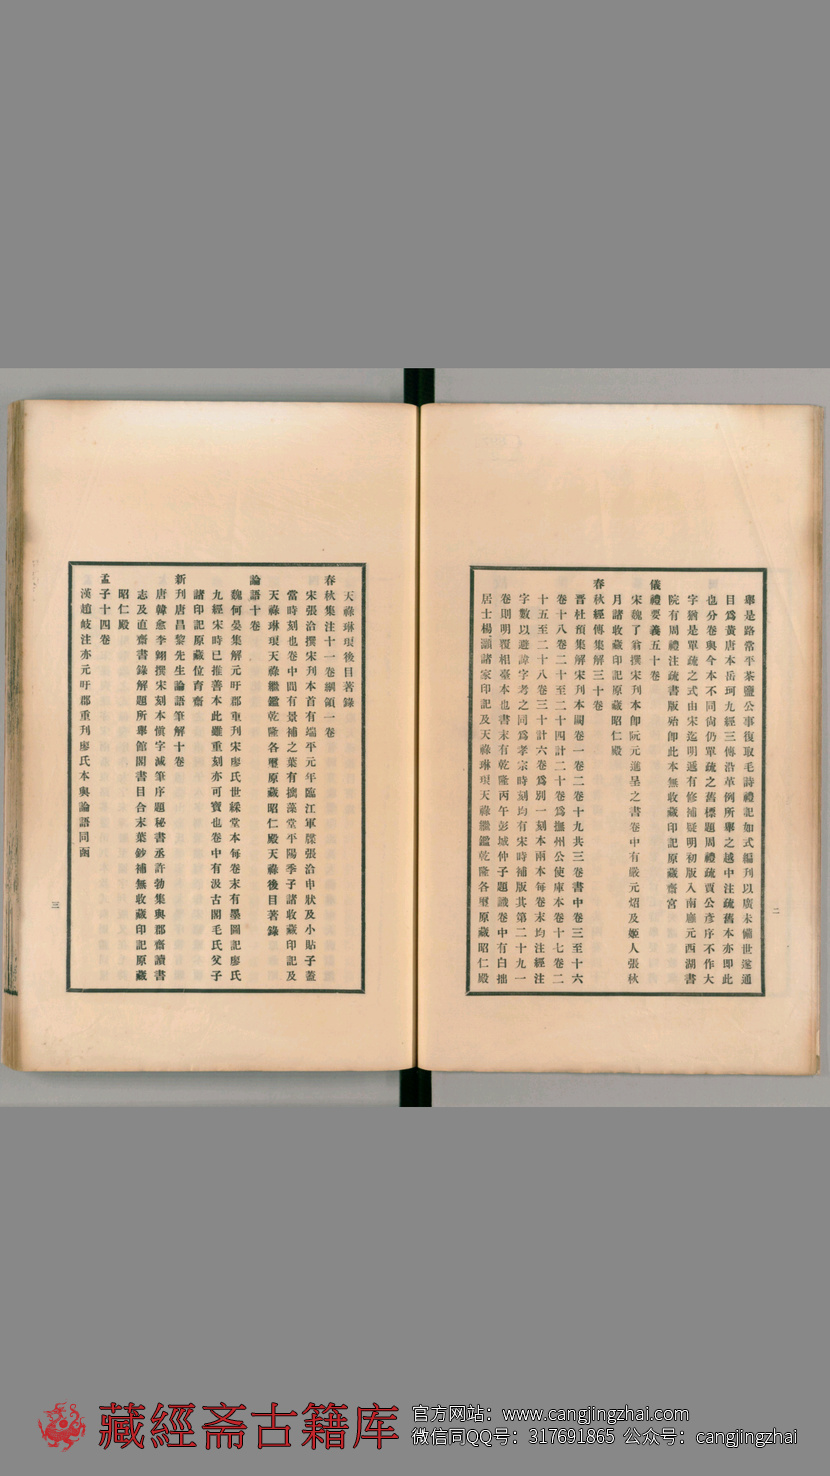 舉是路常平茶鹽公事復取毛詩禮記如式編刊以廣未備世遂通
目爲黃唐本岳珂九經三傳沿革例所舉之越中注疏舊本亦即此
也分卷與今本不同尙仍單疏之舊標題周禮疏賈公彥序不作大
字猶是單疏之式由宋迄明遞有修補疑明初版入南廱元西湖書
院有周禮注疏書版殆即此本無收藏印記原藏齋宮
儀禮要義五十卷
宋魏了翁撰宋刊本卽阮元進呈之書卷中有嚴元炤及姬人張秋
月諸收藏印記原藏昭仁殿
春秋經傳集解三十卷
晉杜預集解宋刊本闕卷一卷二卷十九共三卷書中卷三至十六
卷十八卷二十至二十四計二十卷爲撫州公使庫本卷十七卷二
十五至二十八卷三十計六卷爲別一刻本兩本每卷末均注經注
字數以避諱字考之同爲孝宗時刻均有宋時補版其第二十九一
卷則明覆相臺本也書末有乾隆丙午彭城仲子題識卷中有白拙
居士楊灝諸家印記及天祿琳琅天祿繼鑑乾隆各璽原藏昭仁殿
二
天祿琳琅後目著錄
春秋集注十一卷綱領一卷
宋張洽撰宋刊本首有端平元年臨江軍牒張洽申狀及小貼子蓋
當時刻也卷中間有景補之葉有擒藻堂平陽季子諸收藏印記及
天祿琳琅天祿繼鑑乾隆各璽原藏昭仁殿天祿後目著錄
論語十卷
魏何晏集解元旴郡重刊宋廖氏世綵堂本每卷末有墨圖記廖氏
九經宋時已推善本此雖重刻亦可寶也卷中有汲古閣毛氏父子
諸印記原藏位育齋
新刊唐昌黎先生論語筆解十卷
唐韓愈李翺撰宋刻本愼字減筆序題秘書丞許勃集與郡齋讀書
志及直齋書錄解題所舉館閣書目合末葉鈔補無收藏印記原藏
昭仁殿
孟子十四卷
漢趙岐注亦元旴郡重刊廖氏本與論語同函
三
藏經斋古籍库
官方网站：www.cangjingzhai.com
微信同QQ号：317691865 公众号：cangjingzhai